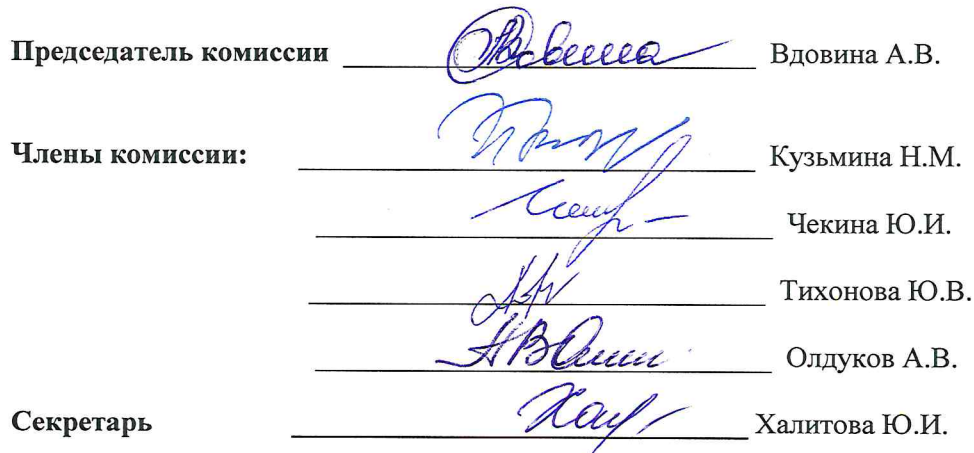 Председатель комиссии Вдовина А.В.
Члены комиссии: Кузьмина Н.М.
Чекина Ю.И.
Тихонова Ю.В.
Олдуков А.В.
Секретарь Халитова Ю.И.